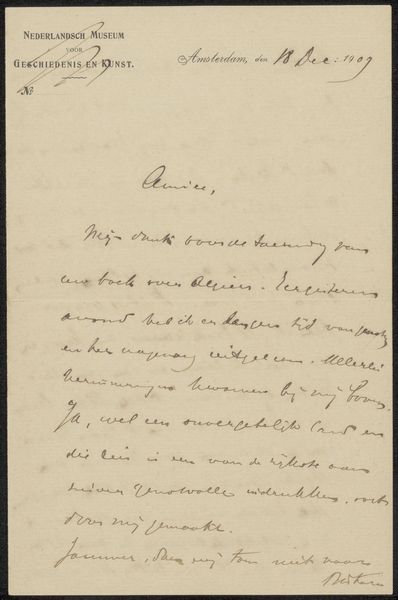 NEDERLANDSCH MUSEUM
VOOR
GESCHIEDENIS EN KUNST.
Amsterdam, den 18 Dec: 1909
No
Amice,
Mijn dank voor de toezending van
uw boek over Algiers. Eergisteren
avond heb ik er langen tijd van
en het uitgelezen. Allerlei
herinneringen kwamen bij mij boven.
Ja, wel een onvergetelijk land en
die reis is een van de rijkste aan
genotvolle indrukken, ooit
door mij gemaakt.
Jammer, dat mij toen niet voor
Biskra